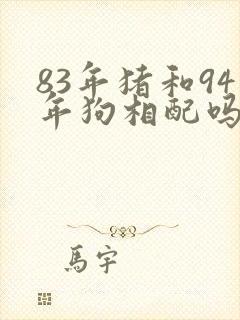 83年猪和94
年狗相配吗
馬宇